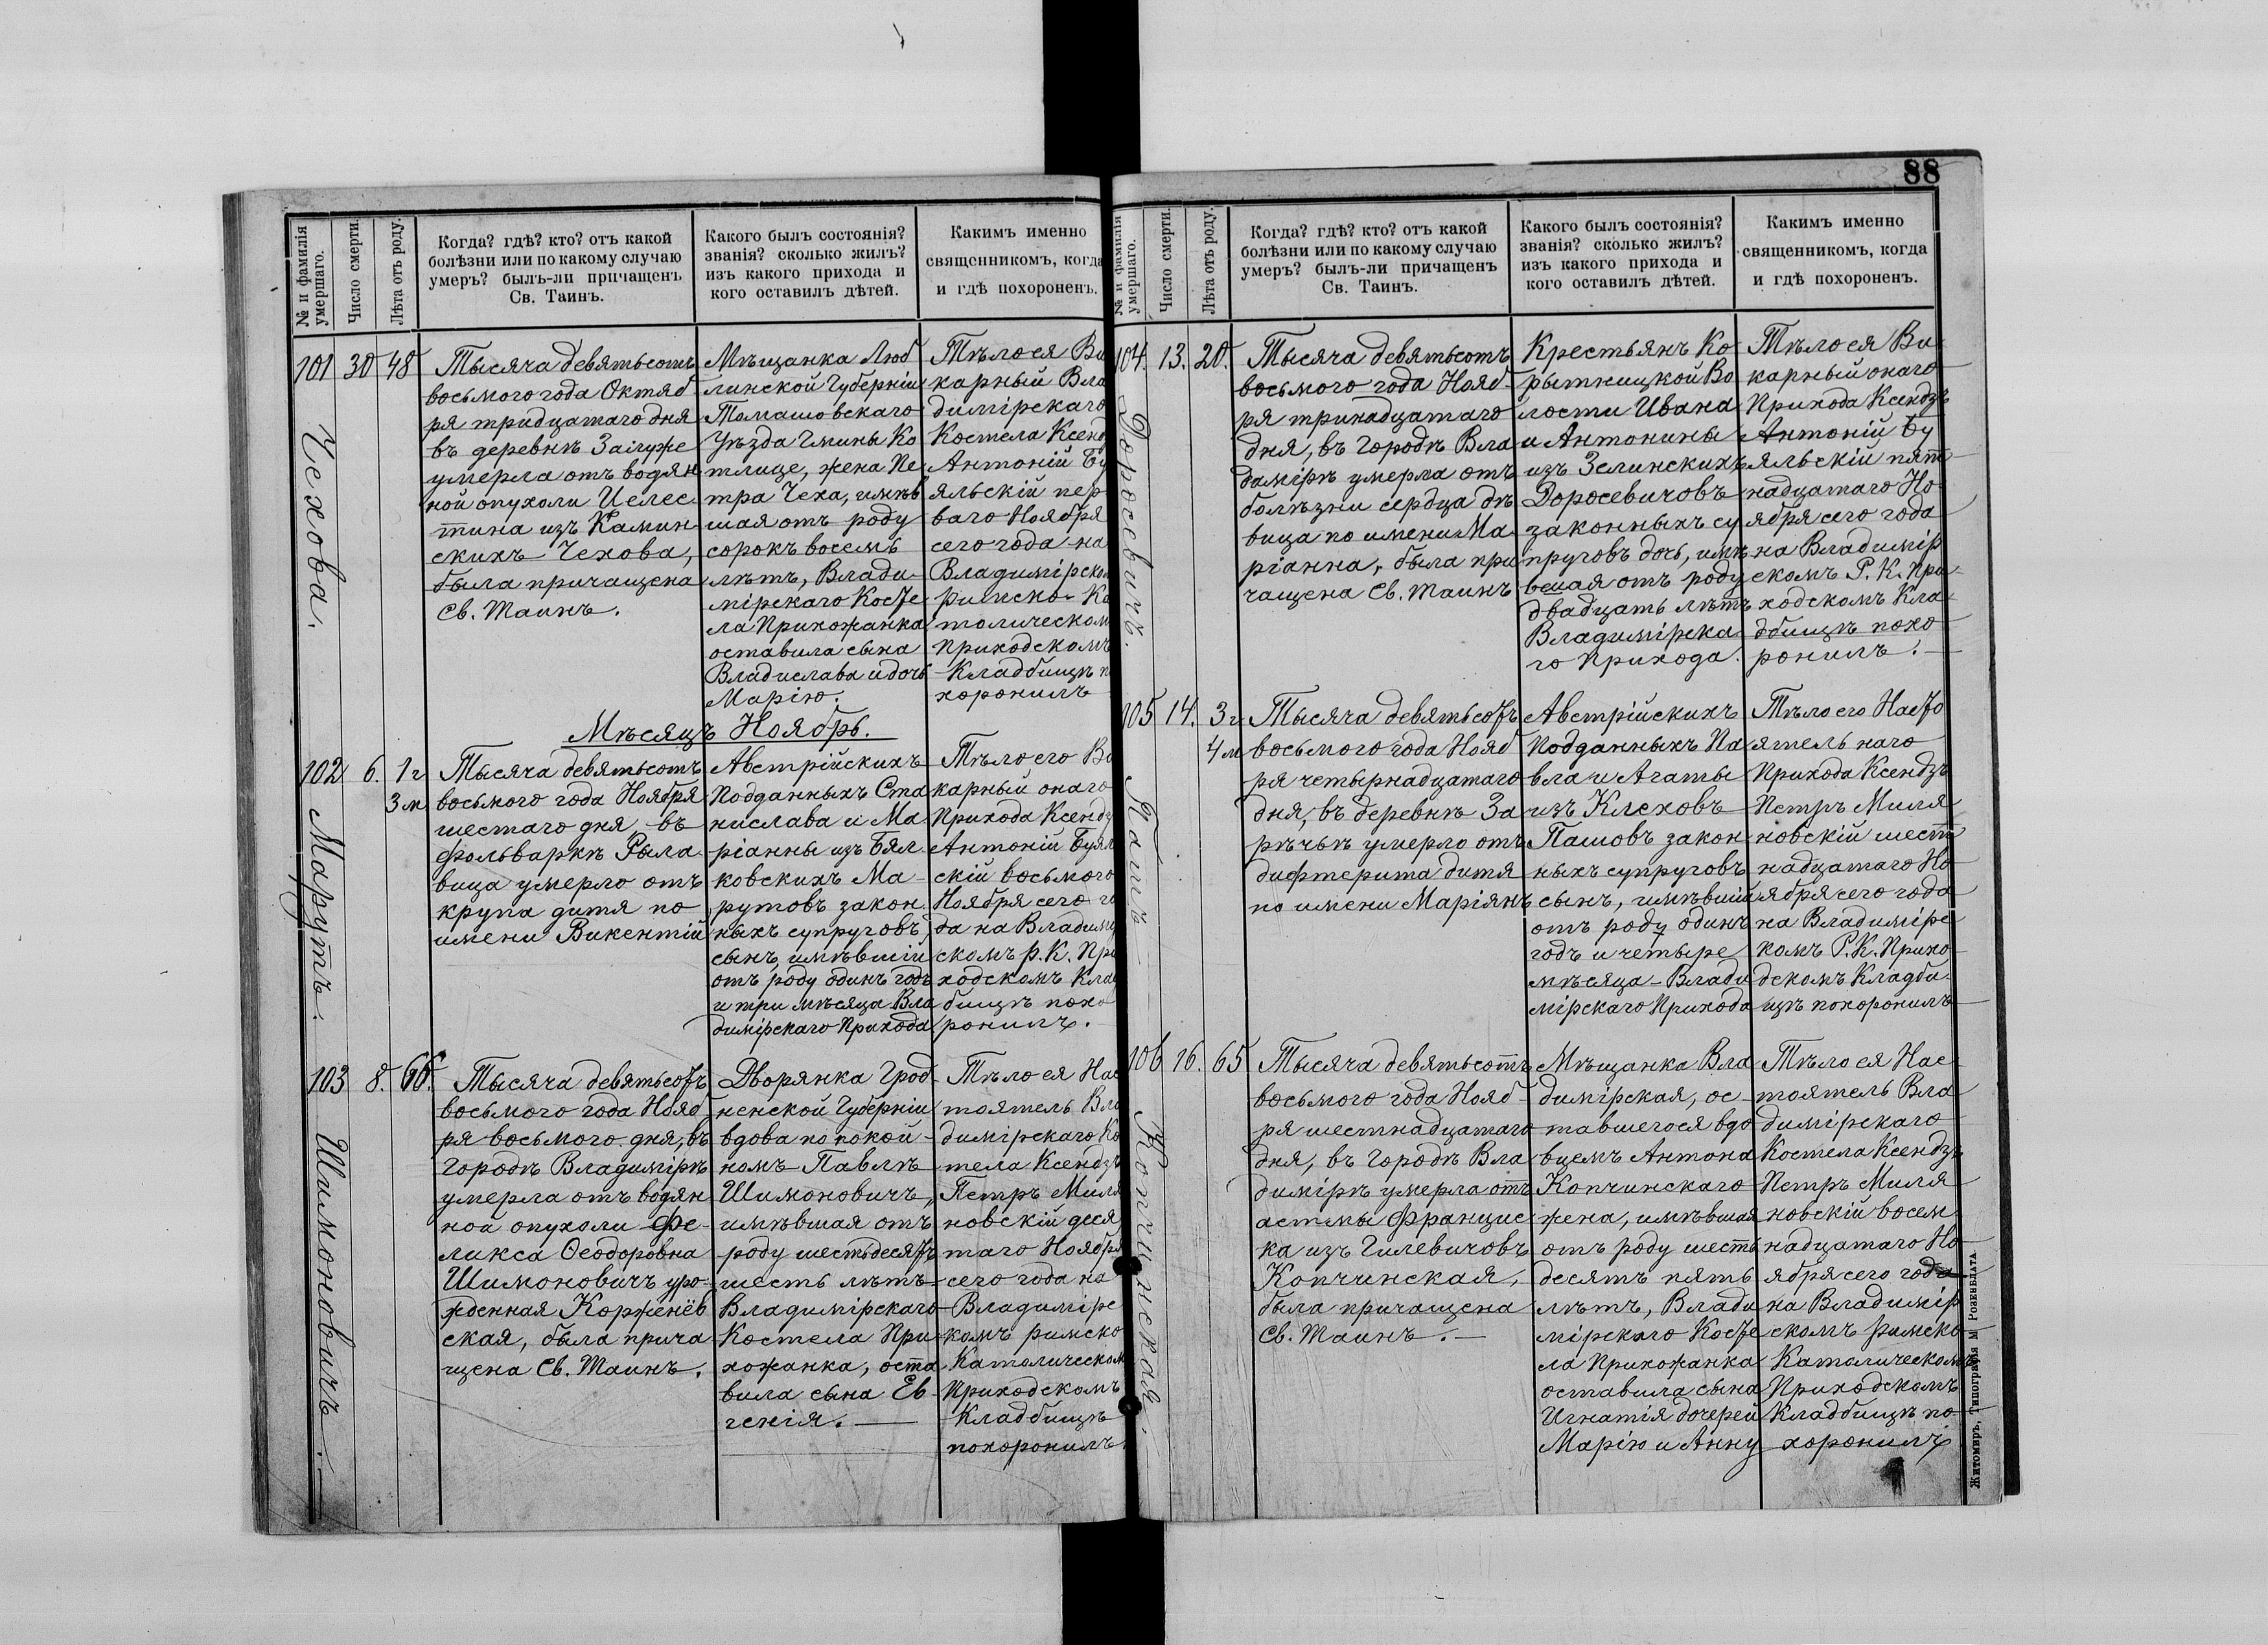 88
№ и фамилія умершаго.
Число смерти.
Лѣта отъ роду.
Когда? гдѣ? кто? отъ какой
болѣзни или по какому случаю
умеръ? былъ-ли причащенъ
Св. Таинъ.
Какого былъ состоянія?
званія? сколько жилъ?
изъ какого прихода и
кого оставилъ дѣтей.
Какимъ именно
священникомъ, когда
и гдѣ похороненъ.
101
Чехова.
30
48
Тысяча девятьсотъ
восьмого года Октяб
ря тридцатаго дня
въ деревнѣ Залуже
умерла отъ водян
ной опухоли Целес
тина изъ Камин
скихъ Чехова,
была причащена
Св. Таинъ.
Мѣщанка Люб
линской Губерніи
Томашовскаго
Уѣзда Гмины Ко
тлице, жена Пе
тра Чеха, имѣв
шая отъ роду
сорокъ восемь
лѣтъ, Влади-
мірскаго Косте
ла Прихожанка
оставила сына
Владислава и дочь
Марію.
Тѣло ея Ви
карный Вла
димірскаго
Костела Ксенд
Антоній Бу
яльскій пер
ваго Ноября
сего года на
Владимірском
римско-Ка
толическом
Приходскомъ
Кладбищѣ п
хоронилъ
Мѣсяцъ Ноябрь.
102
Марутъ.
6.
1 г
3 м
Тысяча девятьсотъ
восьмого года Ноября
шестаго дня въ
фольваркѣ Рыла
вица умерло отъ
крупа дитя по
имени Викентій
Австрійскихъ
Подданныхъ Ста
нислава и Ма
ріанны изъ Бял
ковскихъ Ма-
рутовъ закон
ныхъ супруговъ,
сынъ, имѣвшій
отъ роду одинъ годъ
и три мѣсяца Вла
димірскаго Прихода
Тѣло его Ви
карный онаго
Прихода Ксендз
Антоній Буял
скій восьмого
Ноября сего го
да на Владимір
скомъ р. К. При
ходскомъ Клад
бищѣ похо
ронилъ.
103
Шимоновичъ.
8.
66.
Тысяча девятьсотъ
восьмого года Нояб
ря восьмого дня, въ
Городѣ Владимірѣ
умерла отъ водян
ной опухоли Фе-
ликса Ѳеодоровна
Шимоновичъ уро-
жденная Корженёв
ская, была прича
щена Св. Таинъ.
Дворянка Грод-
ненской Губерніи
вдова по покой-
номъ Павлѣ
Шимоновичъ,
имѣвшая отъ
роду шестьдесятъ
шесть лѣтъ
Владимірскаго
Костела При
хожанка, оста
вила сына Ев-
генія.
Тѣло ея Нас
тоятель Вла
димірскаго Ко
тела Ксендзъ
Петръ Миля
новскій деся
таго Ноября
сего года на
Владимірс
комъ римско
Католическом
Приходскомъ
Кладбищѣ
похоронилъ
№ и фамилія умершаго.
Число смерти.
Лѣта отъ роду.
Когда? гдѣ? кто? отъ какой
болѣзни или по какому случаю
умеръ? былъ-ли причащенъ
Св. Таинъ.
Какого былъ состоянія?
званія? сколько жилъ?
изъ какого прихода и
кого оставилъ дѣтей.
Какимъ именно
священникомъ, когда
и гдѣ похороненъ.
104.
Доросевичъ.
13.
20.
Тысяча девятьсотъ
восьмого года Нояб-
ря тринадцатаго
дня, въ Городѣ Вла
димірѣ умерла отъ
болѣзни сердца дѣ
вица по имени Ма
ріанна, была при
чащена Св. Таинъ
Крестьянъ Ко
рытницкой Во
лости Ивана
и Антонины
изъ Зелинскихъ
Доросевичовъ
законныхъ су
пруговъ дочь, имѣ
вшая отъ роду
двадцать лѣтъ
Владимірска
го Прихода.
Тѣло ея Ви
карный онаго
Прихода Ксендзъ
Антоній Бу
яльскій пят
надцатаго Но
ября сего года
на Владимір
скомъ Р. К. При-
ходскомъ Кла-
дбищѣ похо
ронилъ.
105
Пашъ
14.
3 г
4 м
Тысяча девятьсотъ
восьмого года Нояб
ря четырнадцатаго
дня, въ деревнѣ За
рѣчьѣ умерло отъ
дифтерита дитя
по имени Маріянъ
Австрійскихъ
Подданныхъ Па
вла и Агаты
изъ Клеховъ
Пашовъ закон
ныхъ супруговъ
сынъ, имѣвшій
отъ роду одинъ
годъ и четыре
мѣсяца Влади
мірскаго Прихода
Тѣло его Насто
ятель наго
Прихода Ксендзъ
Петръ Миля
новскій шест
надцатаго Но
ября сего года
на Владимірс
комъ Р. К. Прихо
дскомъ Кладби-
щѣ похоронилъ
106
Копчинская.
16.
65
Тысяча девятьсотъ
восьмого года Нояб-
ря шестнадцатаго
дня, въ Городѣ Вла
димірѣ умерла отъ
астмы Францис
ка изъ Гилевичовъ
Копчинская,
была причащена
Св. Таинъ.
Мѣщанка Вла
димірская, ос-
тавшегося вдо
вцемъ Антона
Копчинскаго
жена, имѣвшая
отъ роду шесть
десятъ пять
лѣтъ, Влади
мірскаго Косте
ла Прихожанка
оставила сына
Игнатія дочерей
Марію и Анну
Тѣло ея Нас-
тоятель Вла
димірскаго
Костела Ксендзъ
Петръ Миля
новскій восем
надцатаго Но
ября сего года
на Владимір
скомъ римско
Католическомъ
Приходскомъ
Кладбищѣ по-
хоронилъ
Житомиръ, Типографія М. Розенблата